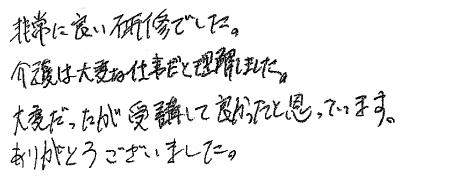 非常に良い研修でした。
介護は大変な仕事だと理解しました。
大変だったが受講して良かったと思っています。
ありがとうございました。